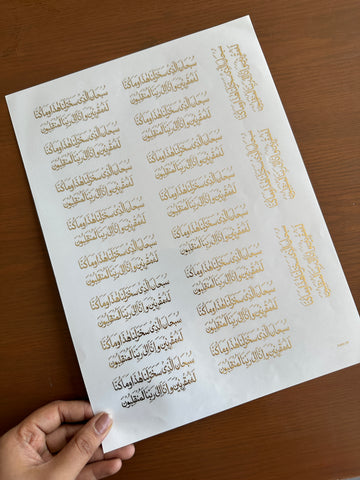 سُبْحَانَ الَّذِي سَخَّرَ لَنَا هَٰذَا وَمَا كُنَّا
لَهُ مُقْرِنِينَ وَإِنَّا إِلَىٰ رَبِّنَا لَمُنقَلِبُونَ
سُبْحَانَ الَّذِي سَخَّرَ لَنَا هَٰذَا وَمَا كُنَّا
لَهُ مُقْرِنِينَ وَإِنَّا إِلَىٰ رَبِّنَا لَمُنقَلِبُونَ
سُبْحَانَ الَّذِي سَخَّرَ لَنَا هَٰذَا وَمَا كُنَّا
لَهُ مُقْرِنِينَ وَإِنَّا إِلَىٰ رَبِّنَا لَمُنقَلِبُونَ
سُبْحَانَ الَّذِي سَخَّرَ لَنَا هَٰذَا وَمَا كُنَّا
لَهُ مُقْرِنِينَ وَإِنَّا إِلَىٰ رَبِّنَا لَمُنقَلِبُونَ
سُبْحَانَ الَّذِي سَخَّرَ لَنَا هَٰذَا وَمَا كُنَّا
لَهُ مُقْرِنِينَ وَإِنَّا إِلَىٰ رَبِّنَا لَمُنقَلِبُونَ
سُبْحَانَ الَّذِي سَخَّرَ لَنَا هَٰذَا وَمَا كُنَّا
لَهُ مُقْرِنِينَ وَإِنَّا إِلَىٰ رَبِّنَا لَمُنقَلِبُونَ
سُبْحَانَ الَّذِي سَخَّرَ لَنَا هَٰذَا وَمَا كُنَّا
لَهُ مُقْرِنِينَ وَإِنَّا إِلَىٰ رَبِّنَا لَمُنقَلِبُونَ
سُبْحَانَ الَّذِي سَخَّرَ لَنَا هَٰذَا وَمَا كُنَّا
لَهُ مُقْرِنِينَ وَإِنَّا إِلَىٰ رَبِّنَا لَمُنقَلِبُونَ
سُبْحَانَ الَّذِي سَخَّرَ لَنَا هَٰذَا وَمَا كُنَّا
لَهُ مُقْرِنِينَ وَإِنَّا إِلَىٰ رَبِّنَا لَمُنقَلِبُونَ
سُبْحَانَ الَّذِي سَخَّرَ لَنَا هَٰذَا وَمَا كُنَّا
لَهُ مُقْرِنِينَ وَإِنَّا إِلَىٰ رَبِّنَا لَمُنقَلِبُونَ
سُبْحَانَ الَّذِي سَخَّرَ لَنَا هَٰذَا وَمَا كُنَّا
لَهُ مُقْرِنِينَ وَإِنَّا إِلَىٰ رَبِّنَا لَمُنقَلِبُونَ
سُبْحَانَ الَّذِي سَخَّرَ لَنَا هَٰذَا وَمَا كُنَّا
لَهُ مُقْرِنِينَ وَإِنَّا إِلَىٰ رَبِّنَا لَمُنقَلِبُونَ
سُبْحَانَ الَّذِي سَخَّرَ لَنَا هَٰذَا وَمَا كُنَّا
لَهُ مُقْرِنِينَ وَإِنَّا إِلَىٰ رَبِّنَا لَمُنقَلِبُونَ
سُبْحَانَ الَّذِي سَخَّرَ لَنَا هَٰذَا وَمَا كُنَّا
لَهُ مُقْرِنِينَ وَإِنَّا إِلَىٰ رَبِّنَا لَمُنقَلِبُونَ
سُبْحَانَ الَّذِي سَخَّرَ لَنَا هَٰذَا وَمَا كُنَّا
لَهُ مُقْرِنِينَ وَإِنَّا إِلَىٰ رَبِّنَا لَمُنقَلِبُونَ
سُبْحَانَ الَّذِي سَخَّرَ لَنَا هَٰذَا وَمَا كُنَّا
لَهُ مُقْرِنِينَ وَإِنَّا إِلَىٰ رَبِّنَا لَمُنقَلِبُونَ